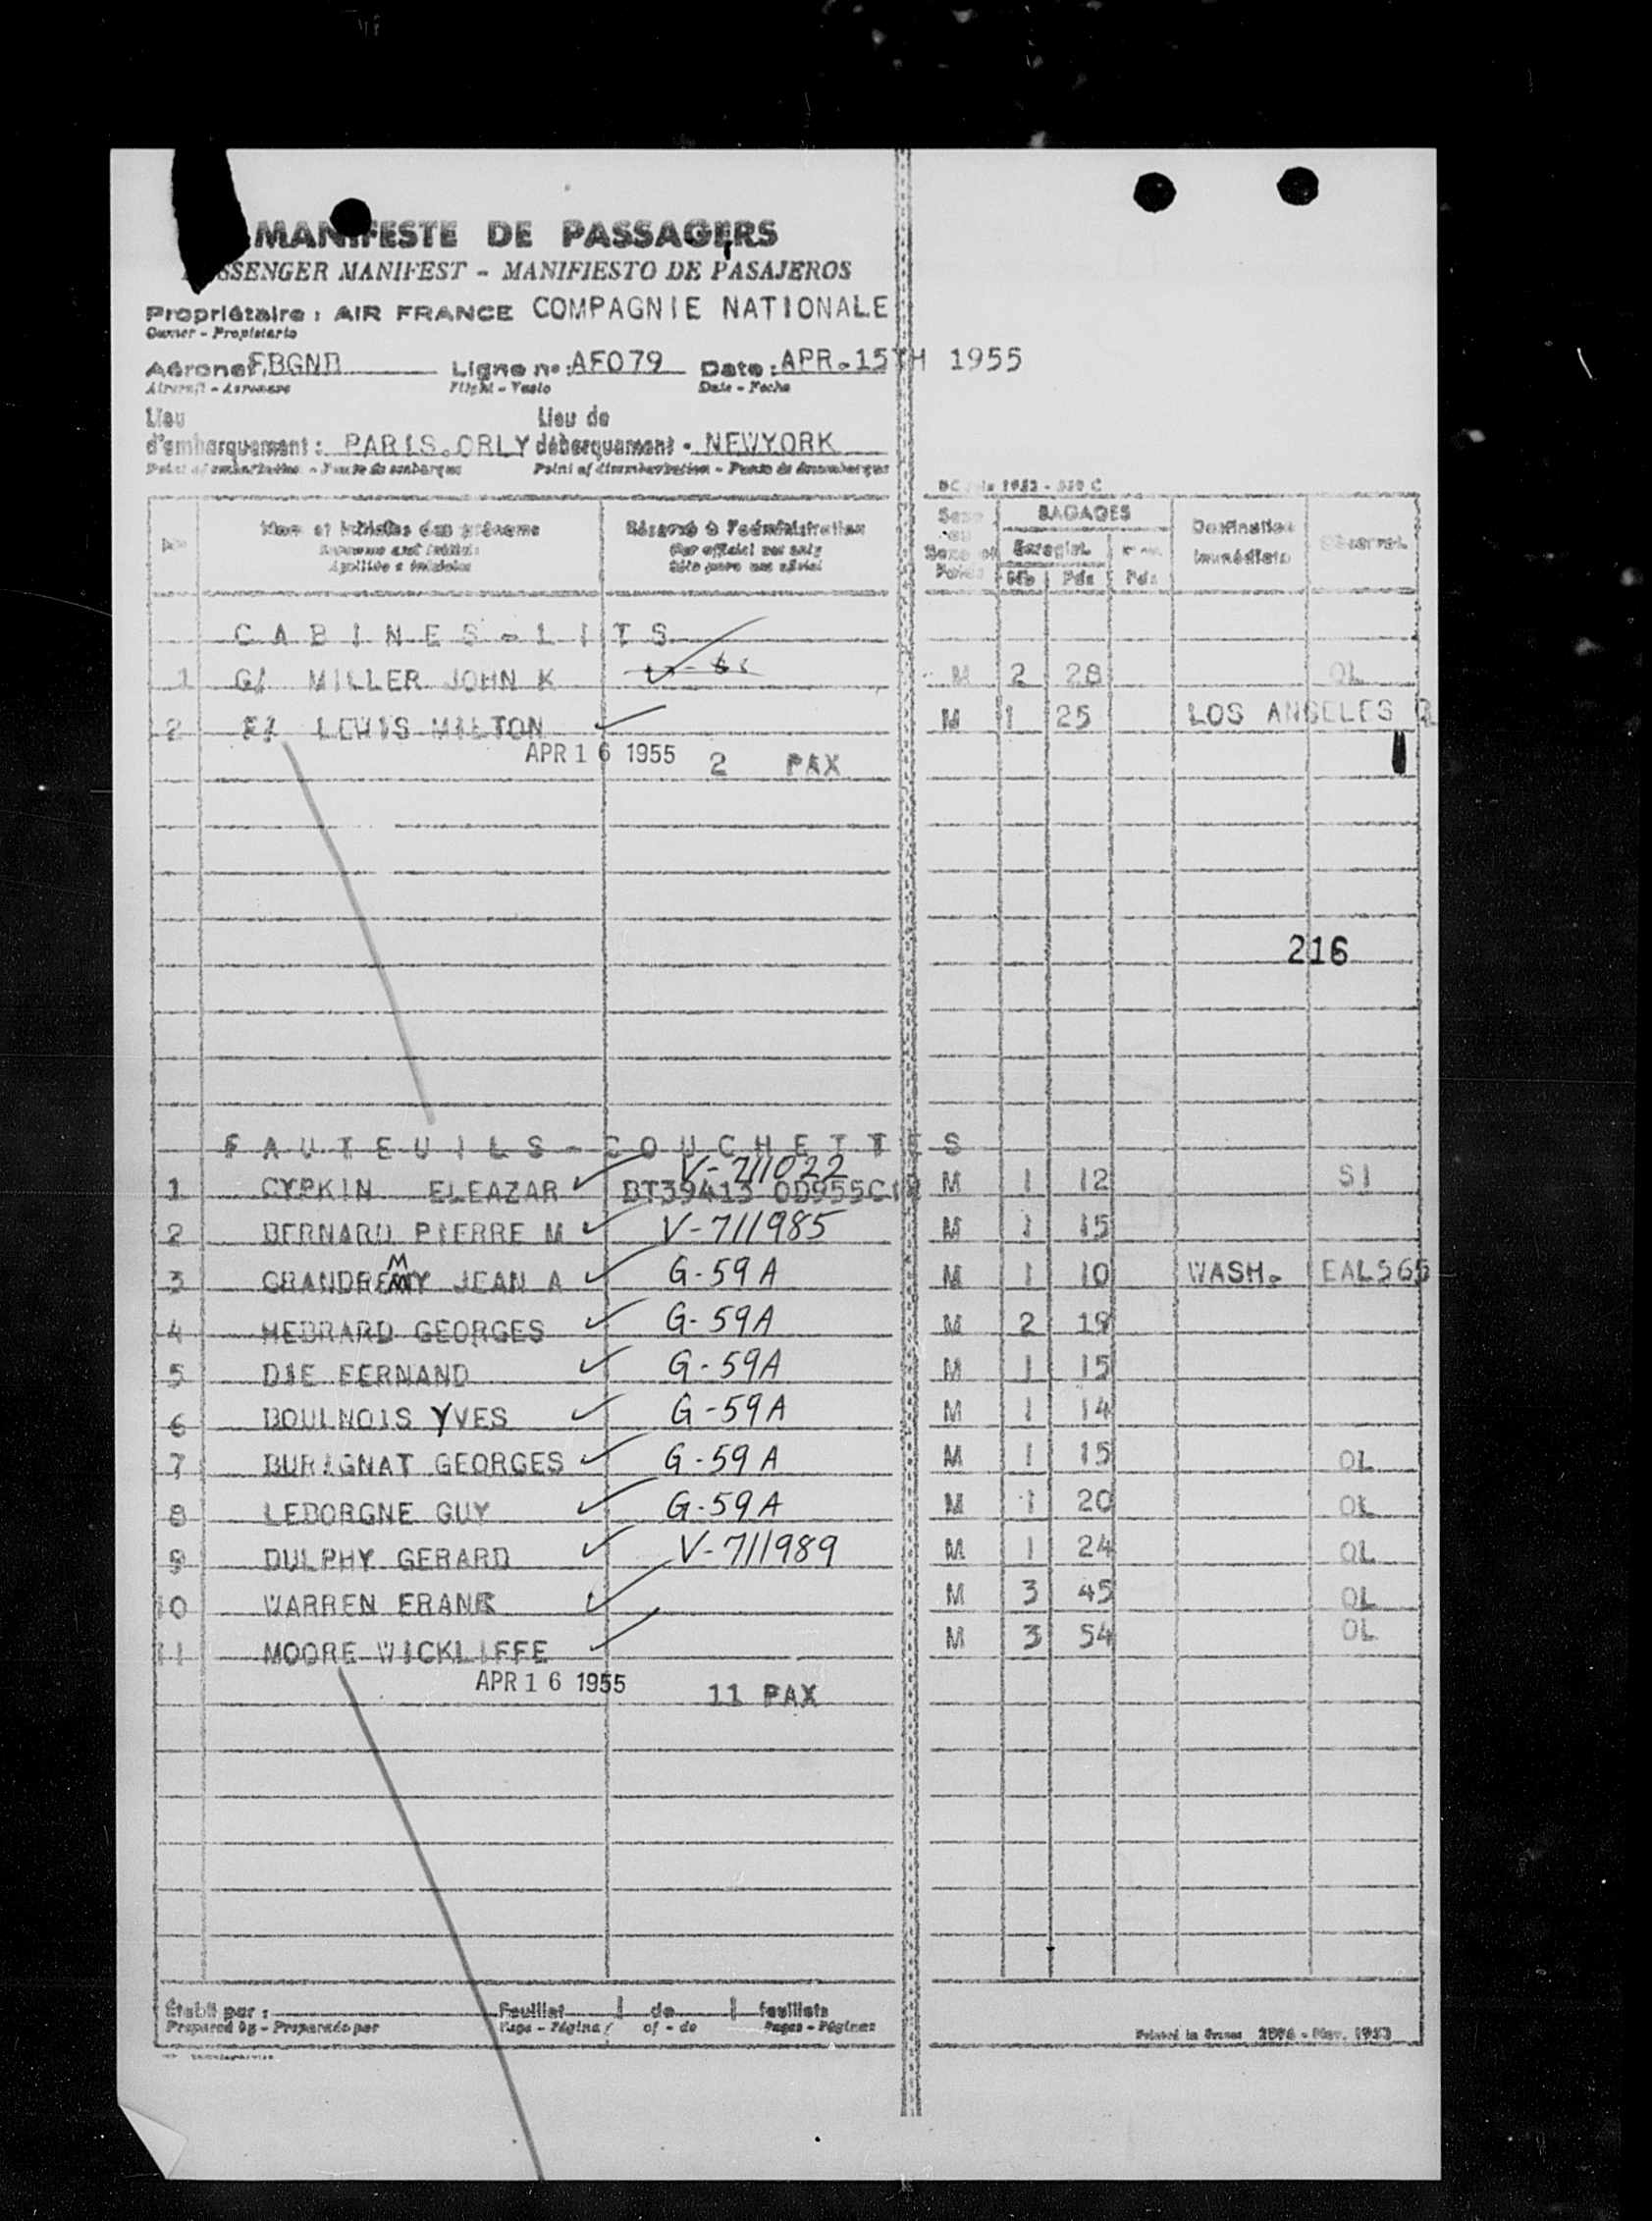 MANIFESTE DE PASSAGERS
PASSENGER MANIFEST - MANIFIESTO DE PASAJEROS
Propriétaire : AIR FRANCE COMPAGNIE NATIONALE
Owner - Propietario
Aéronef FBGND Ligne n° : AF079 Date : APR.15TH 1955
Aircraft - Aeronave Flight - Vuelo Date - Fecha
Lieu Lieu de
d'embarquement : PARIS.ORLY débarquement - NEWYORK
Point of embarkation - Punto de embarque Point of disembarkation - Punto de desembarque
Nom et initiales des prénoms Réservé à l'administration Sexe BAGAGES Destination Observat.
Surname and initials For official use only ou Enregist. immédiate
Apellido e iniciales Sólo para uso oficial Nb Pds Pds
CABINES-LITS
1 G/ MILLER JOHN K M 2 28 OL
2 F/ LEWIS MILTON M 1 25 LOS ANGELES
APR 16 1955 2 PAX
216
FAUTEUILS-COUCHETTES
V-711022
1 CYPKIN ELEAZAR M 1 12 SI
2 BERNARD PIERRE M V-711985 M 1 15
3 GRANDREMY JEAN A G-59A M 1 10 WASH. EAL565
4 HEBRARD GEORGES G-59A M 2 19
5 DIE FERNAND G-59A M 1 15
6 BOULNOIS YVES G-59A M 1 14
7 BURIGNAT GEORGES G-59A M 1 15 OL
8 LEBORGNE GUY G-59A M 1 20 OL
9 DULPHY GERARD V-711989 M 1 24 OL
10 WARREN FRANK M 3 45 OL
11 MOORE WICKLIFFE M 3 54 OL
APR 16 1955 11 PAX
Établi par : Feuillet 1 de 1 feuillets
Prepared by - Preparado por Page - Página of - de Pages - Páginas
Printed in France